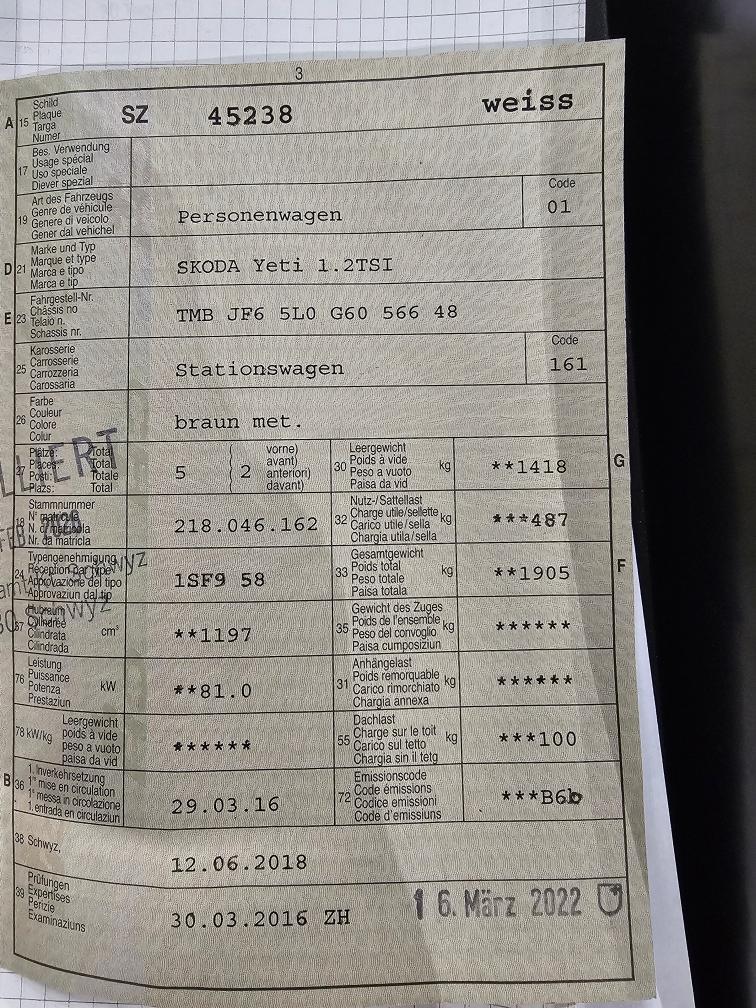 3
A 15 Schild
Plaque
Targa
Numer
SZ 45238 weiss
17 Bes. Verwendung
Usage spécial
Uso speciale
Diever spezial
19 Art des Fahrzeugs
Genre de véhicule
Genere di veicolo
Gener dal vehichel
Personenwagen
Code
01
D 21 Marke und Typ
Marque et type
Marca e tipo
Marca e tip
SKODA Yeti 1.2TSI
E 23 Fahrgestell-Nr.
Châssis no
Telaio n.
Schassis nr.
TMB JF6 5L0 G60 566 48
25 Karosserie
Carrosserie
Carrozzeria
Carossaria
Stationswagen
Code
161
26 Farbe
Couleur
Colore
Colur
braun met.
27 Plätze: Total
Places: Total
Posti: Totale
Plazs: Total
5 (2 vorne)
avant)
anteriori)
davant)
30 Leergewicht
Poids à vide kg
Peso a vuoto
Paisa da vid
**1418
G
18 Stammnummer
N° matricule
N. di matricola
Nr. da matricla
218.046.162
32 Nutz-/Sattellast
Charge utile/sellette kg
Carico utile/sella
Chargia utila/sella
***487
24 Typengenehmigung
Réception par type
Approvazione del tipo
Approvaziun dal tip
1SF9 58
33 Gesamtgewicht
Poids total kg
Peso totale
Paisa totala
**1905
F
37 Hubraum
Cylindrée cm³
Cilindrata
Cilindrada
**1197
35 Gewicht des Zuges
Poids de l'ensemble kg
Peso del convoglio
Paisa cumposiziun
******
76 Leistung
Puissance kW
Potenza
Prestaziun
**81.0
31 Anhängelast
Poids remorquable kg
Carico rimorchiato
Chargia annexa
******
78 kW/kg Leergewicht
poids à vide
peso a vuoto
paisa da vid
******
55 Dachlast
Charge sur le toit kg
Carico sul tetto
Chargia sin il tetg
***100
B 36 1. Inverkehrsetzung
1re mise en circulation
1a messa in circolazione
1. entrada en circulaziun
29.03.16
72 Emissionscode
Code émissions
Codice emissioni
Code d'emissiuns
***B6b
38 Schwyz,
12.06.2018
39 Prüfungen
Expertises
Perizie
Examinaziuns
30.03.2016 ZH
16. März 2022